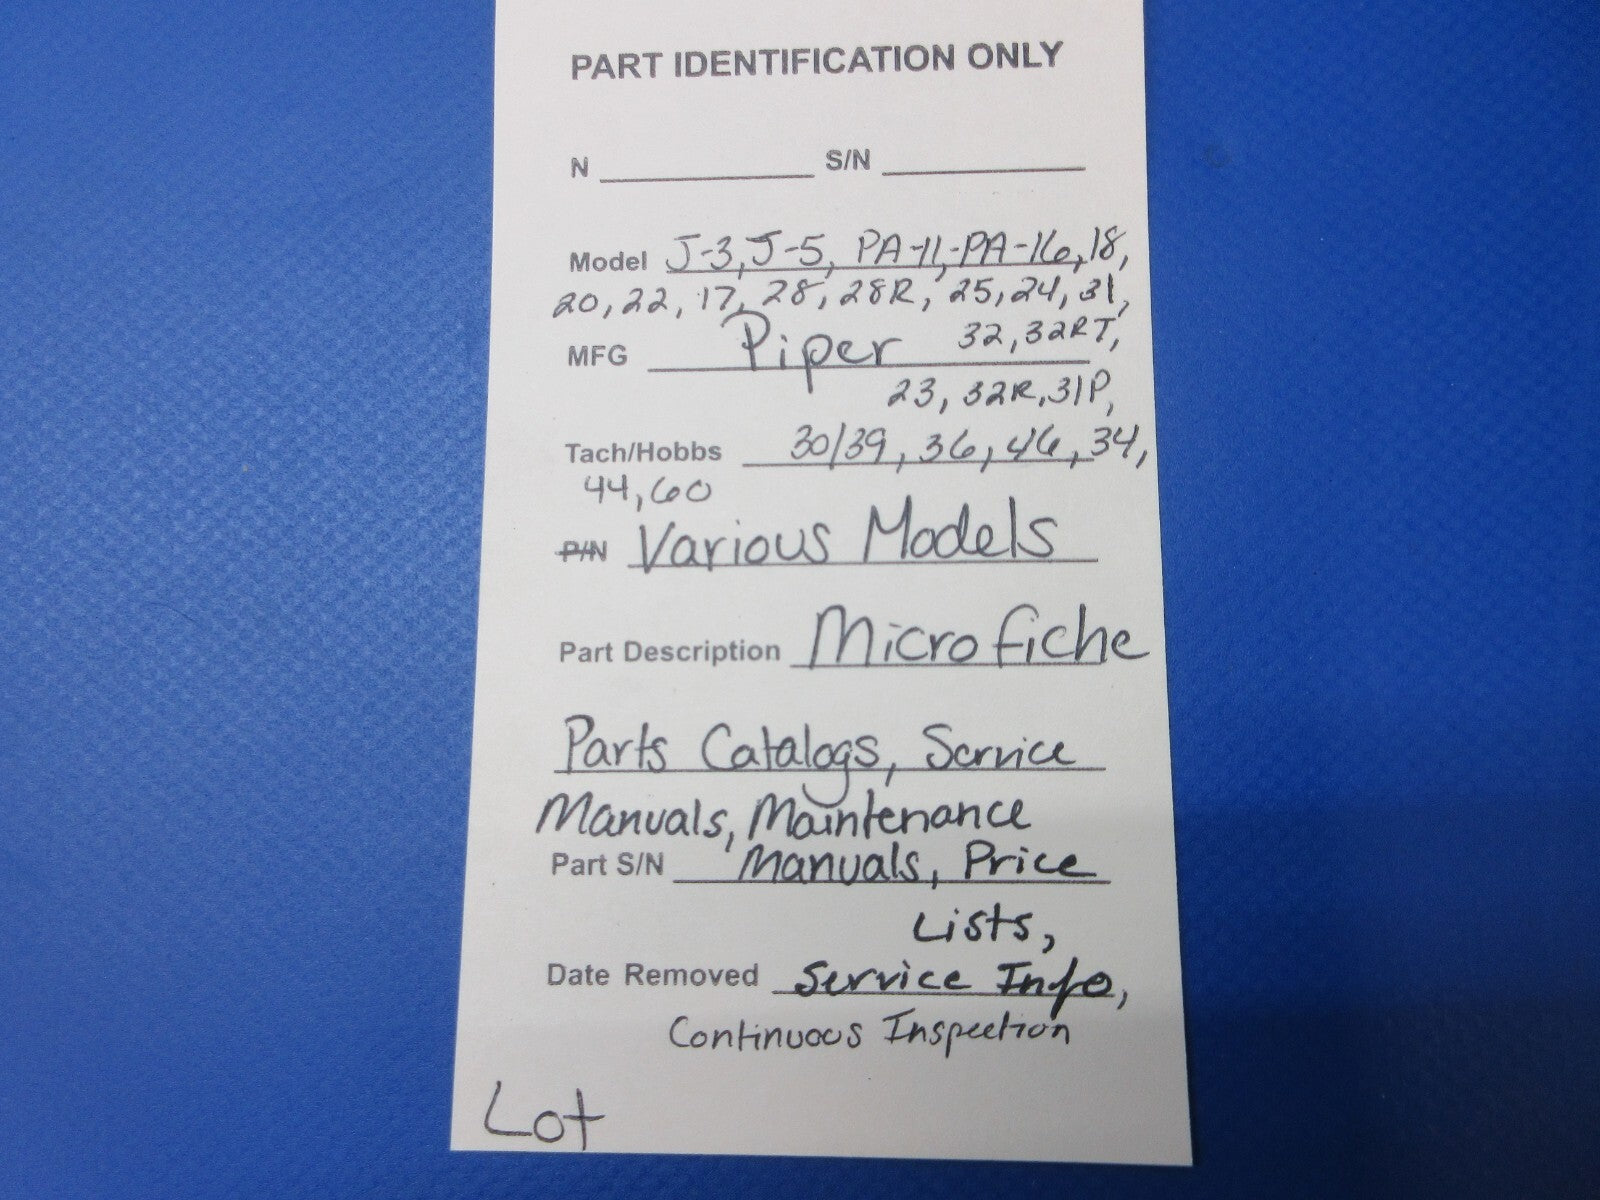 PART IDENTIFICATION ONLY
N S/N
Model J-3, J-5, PA-11,-PA-16, 18,
20, 22, 17, 28, 28R, 25, 24, 31,
32, 32RT,
MFG Piper
23, 32R, 31P,
Tach/Hobbs 30/39, 36, 46, 34,
44, 60
P/N Various Models
Part Description Microfiche
Parts Catalogs, Service
Manuals, Maintenance
Part S/N Manuals, Price
Lists,
Date Removed Service Info,
Continuous Inspection
Lot